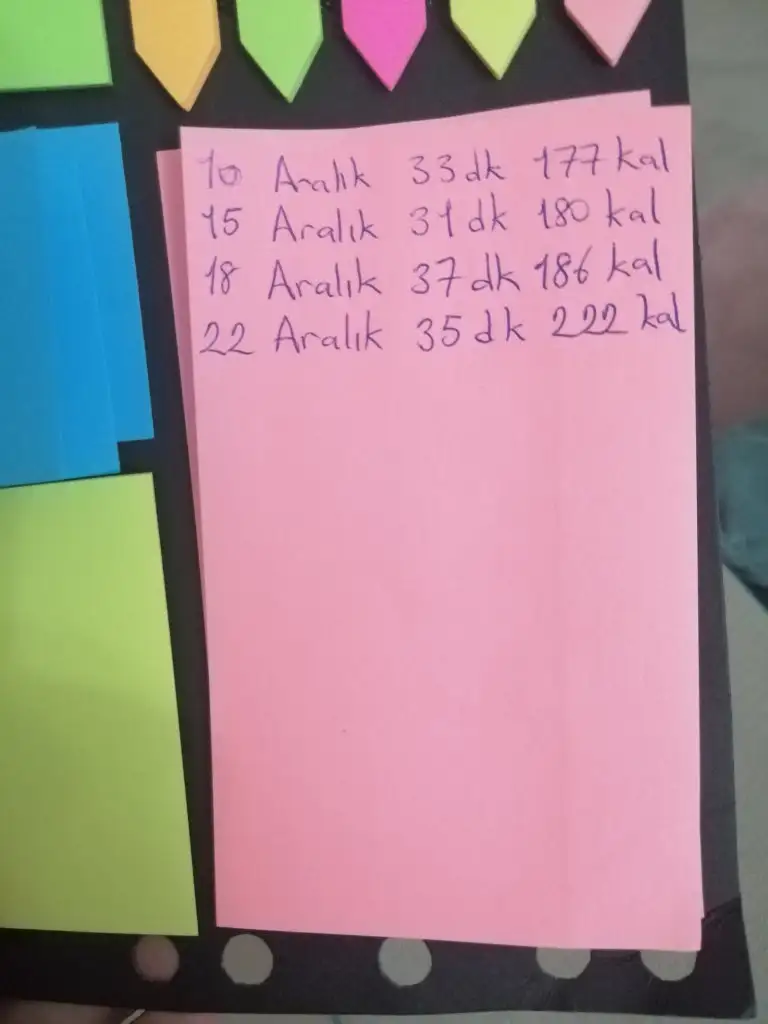 10 Aralık 33 dk 177 kal
15 Aralık 31 dk 180 kal
18 Aralık 37 dk 186 kal
22 Aralık 35 dk 222 kal